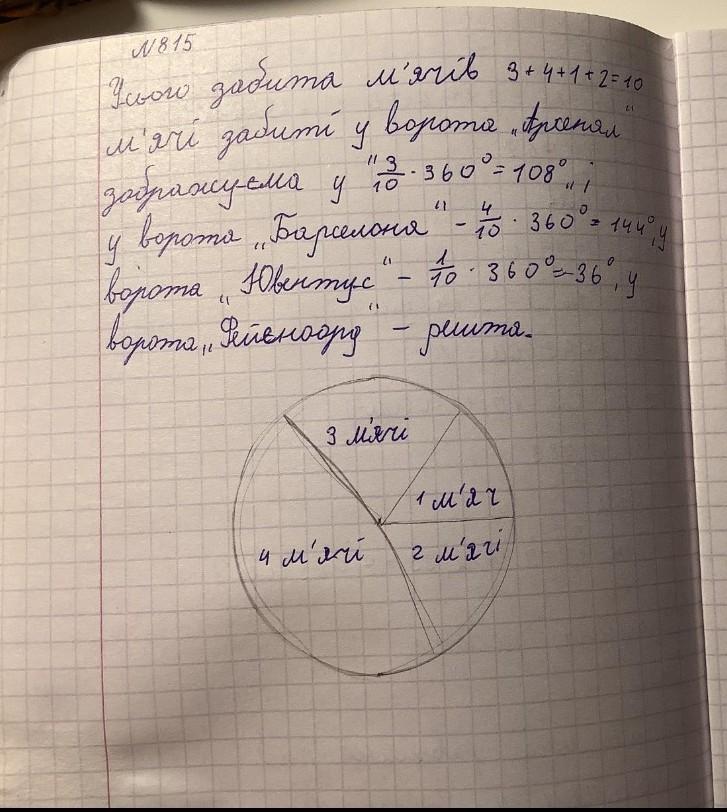 №815
Усього забита м'ячів 3+4+1+2=10
м'ячі забиті у ворота „Арсенал"
зображуєма у "3/10 · 360° = 108°„ і
у ворота „Барселона" - 4/10 · 360° = 144°, у
ворота „Ювентус" - 1/10 · 360° = 36°, у
ворота „Фейєноорд" - решта.
3 м'ячі
1 м'яч
4 м'ячі
2 м'ячі